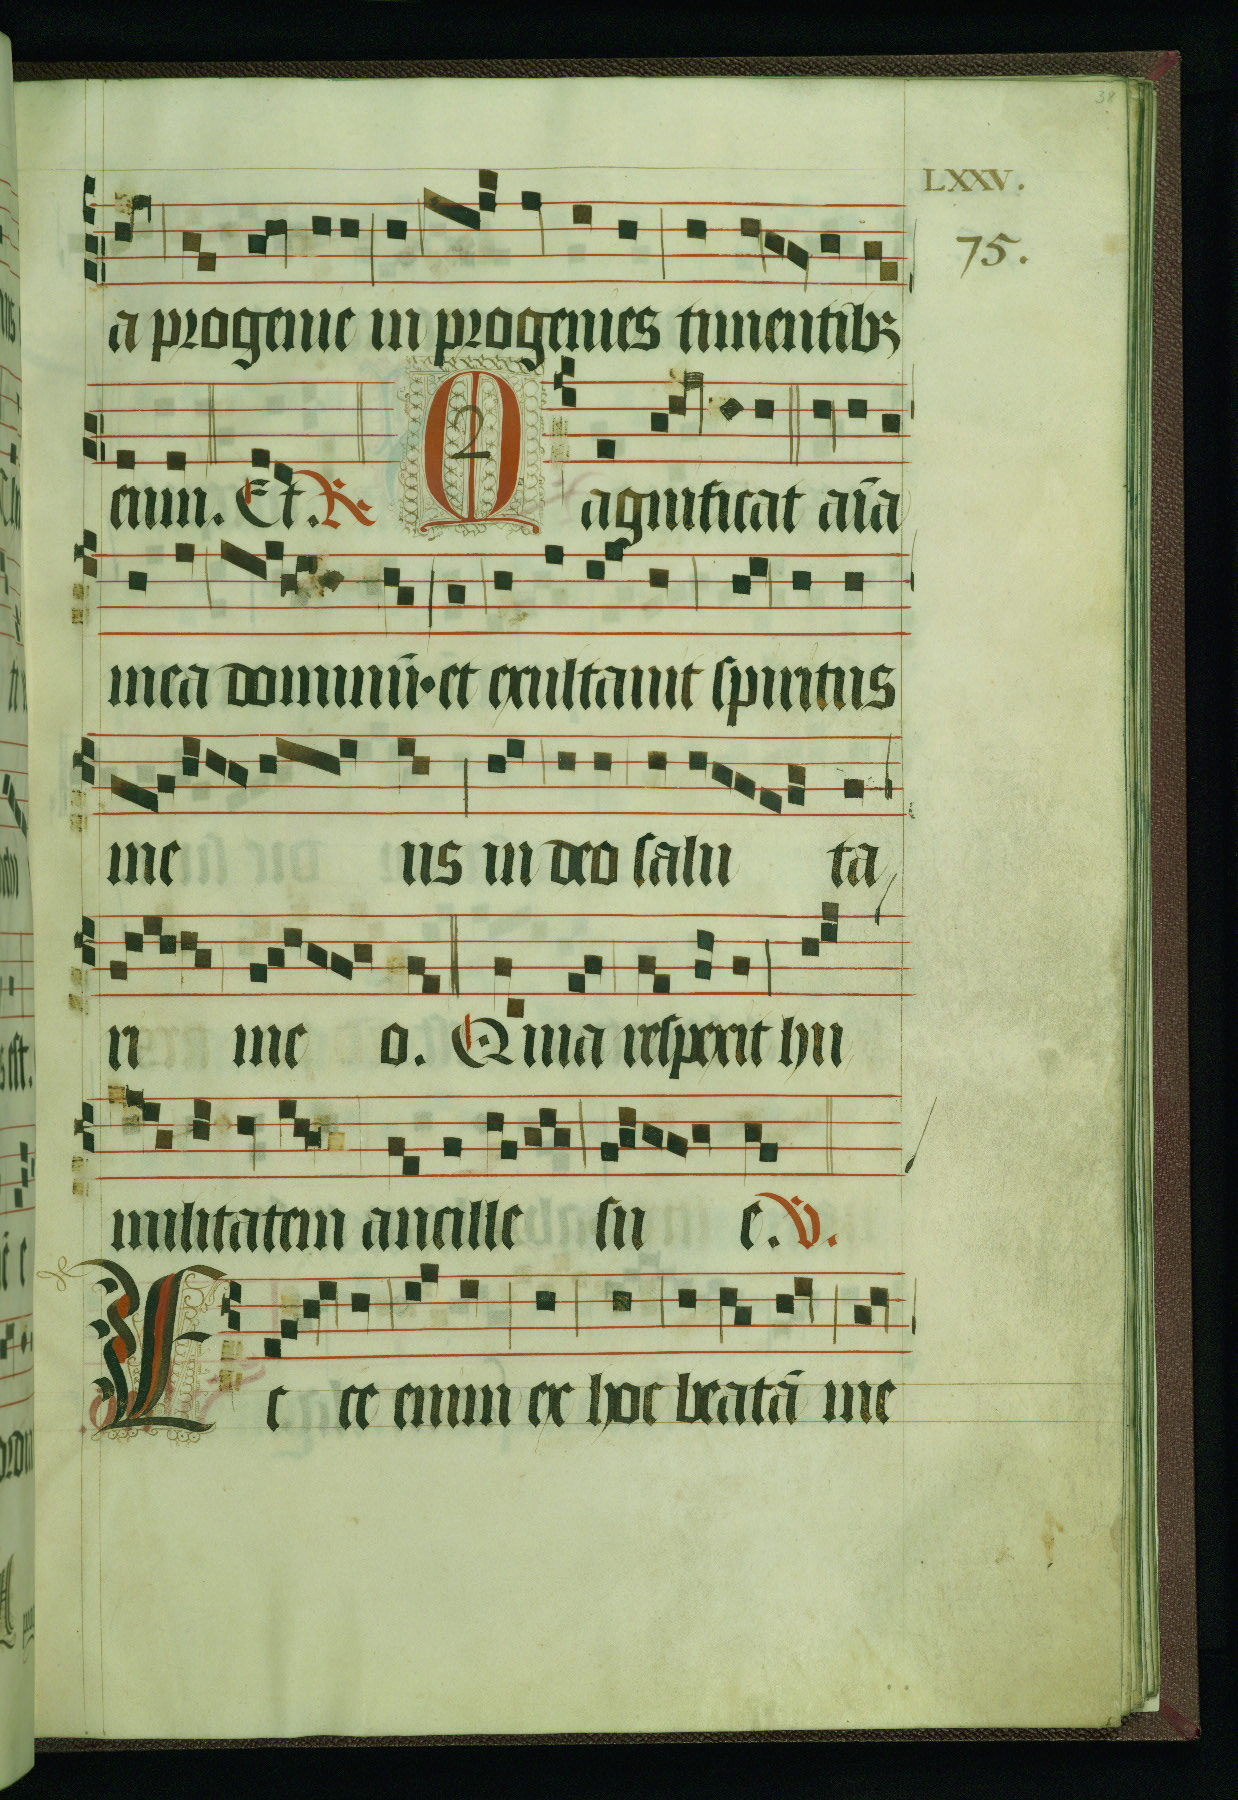 38
LXXV.
75.
a progenie in progenies timentibꝫ
eum. Et. ℟.
2
Magnificat aīa
mea dominū· et exultauit spiritus
me us in deo salu ta
ri me o. Quia respexit hu
militatem ancille su e. V.
Ec ce enim ex hoc beatā me